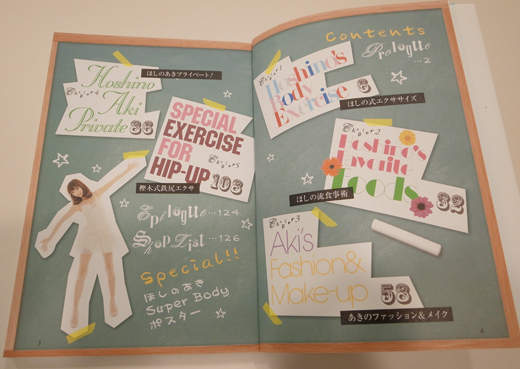 Contents
Prologue
…2
Chapter1
Hoshino's
Body
Exercise 6
ほしの式エクササイズ
Chapter2
Hoshino's
Favorite
Foods 32
ほしの流食事術
Chapter3
Aki's
Fashion&
Make-up 58
あきのファッション&メイク
ほしのあきプライベート!
Chapter4
Hoshino
Aki
Private 86
SPECIAL
EXERCISE
FOR
HIP-UP
Chapter5
103
樫木式鉄尻エクサ
Epilogue…124
Shop List…126
Special!!
ほしのあき
Super Body
ポスター